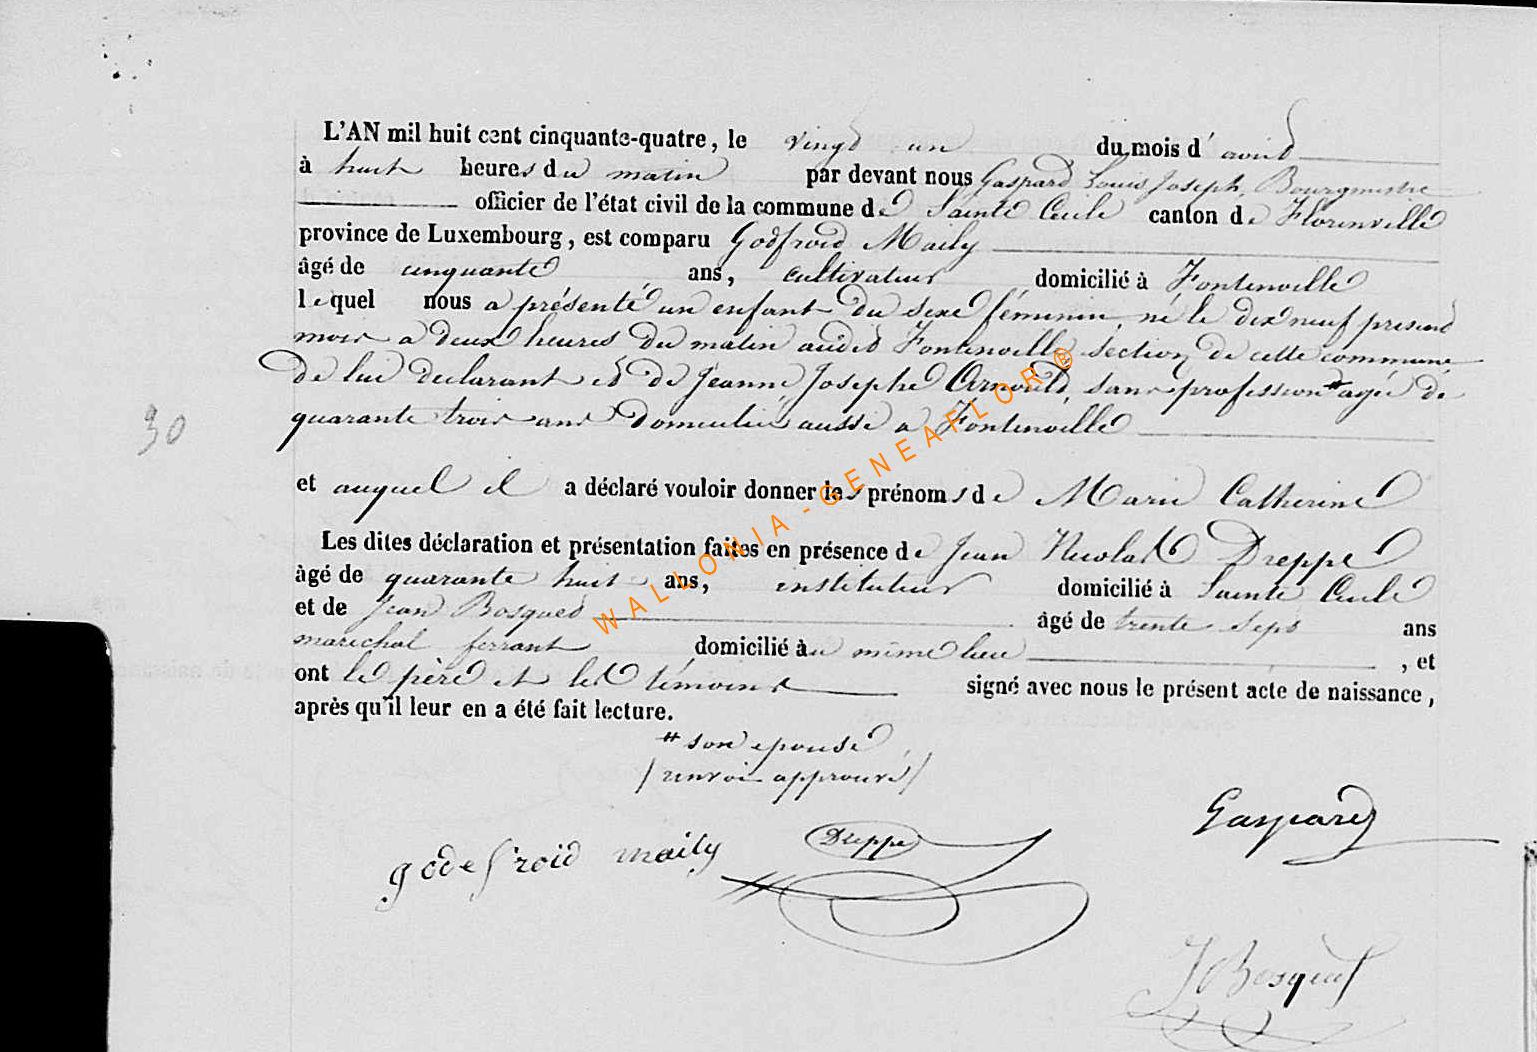 L'AN mil huit cent cinquante-quatre, le vingt un du mois d'avril
à huit heures du matin par devant nous Gaspard Louis Joseph, Bourgmestre
officier de l'état civil de la commune de Sainte Cecile canton de Florenville
province de Luxembourg, est comparu Godfroid Maily
âgé de cinquante ans, cultivateur domicilié à Fontenoille
lequel nous a présenté un enfant du sexe féminin, né le dix neuf present
mois a deux heures du matin audit Fontenoille section de cette commune,
de lui declarant et de Jeanne Josephe Arnould, sans profession # agée de
quarante trois ans domiciliée aussi a Fontenoille
30
et auquel il a déclaré vouloir donner les prénoms de Marie Catherine
Les dites déclaration et présentation faites en présence de Jean Nicolas Dreppe
âgé de quarante huit ans, instituteur domicilié à Sainte Cecile
et de Jean Bosquet âgé de trente sept ans
marechal ferrant domicilié au même lieu , et
ont le père et les témoins signé avec nous le présent acte de naissance,
après qu'il leur en a été fait lecture.
# son epouse
/ renvoi approuvé /
Gaspard
godefroid maily Dreppe
J Bosquet
WALLONIA-GENEAFLOR®